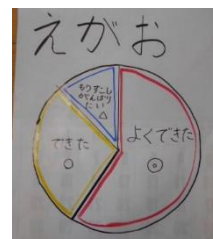 えがお
もうすこし
がんばり
たい
△
できた
○
よくできた
◎